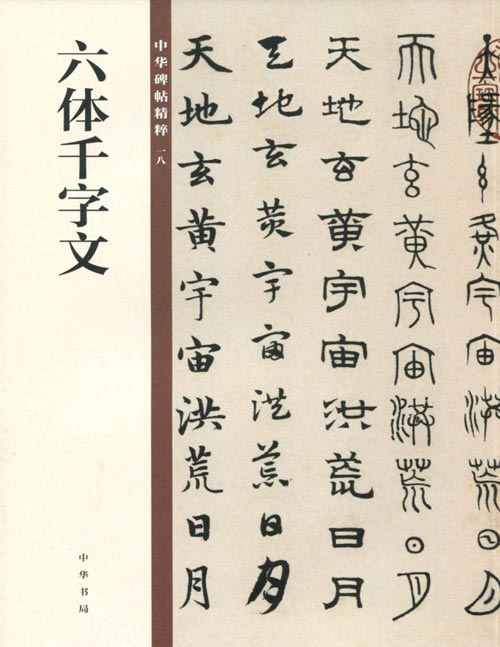 六体千字文
中华书局
中华碑帖精粹 一八
天地玄黄宇宙洪荒日月
天地玄黄宇宙洪荒日月
天地玄黄宇宙洪荒日月
天地玄黄宇宙洪荒日月
地玄黄宇宙洪荒日月